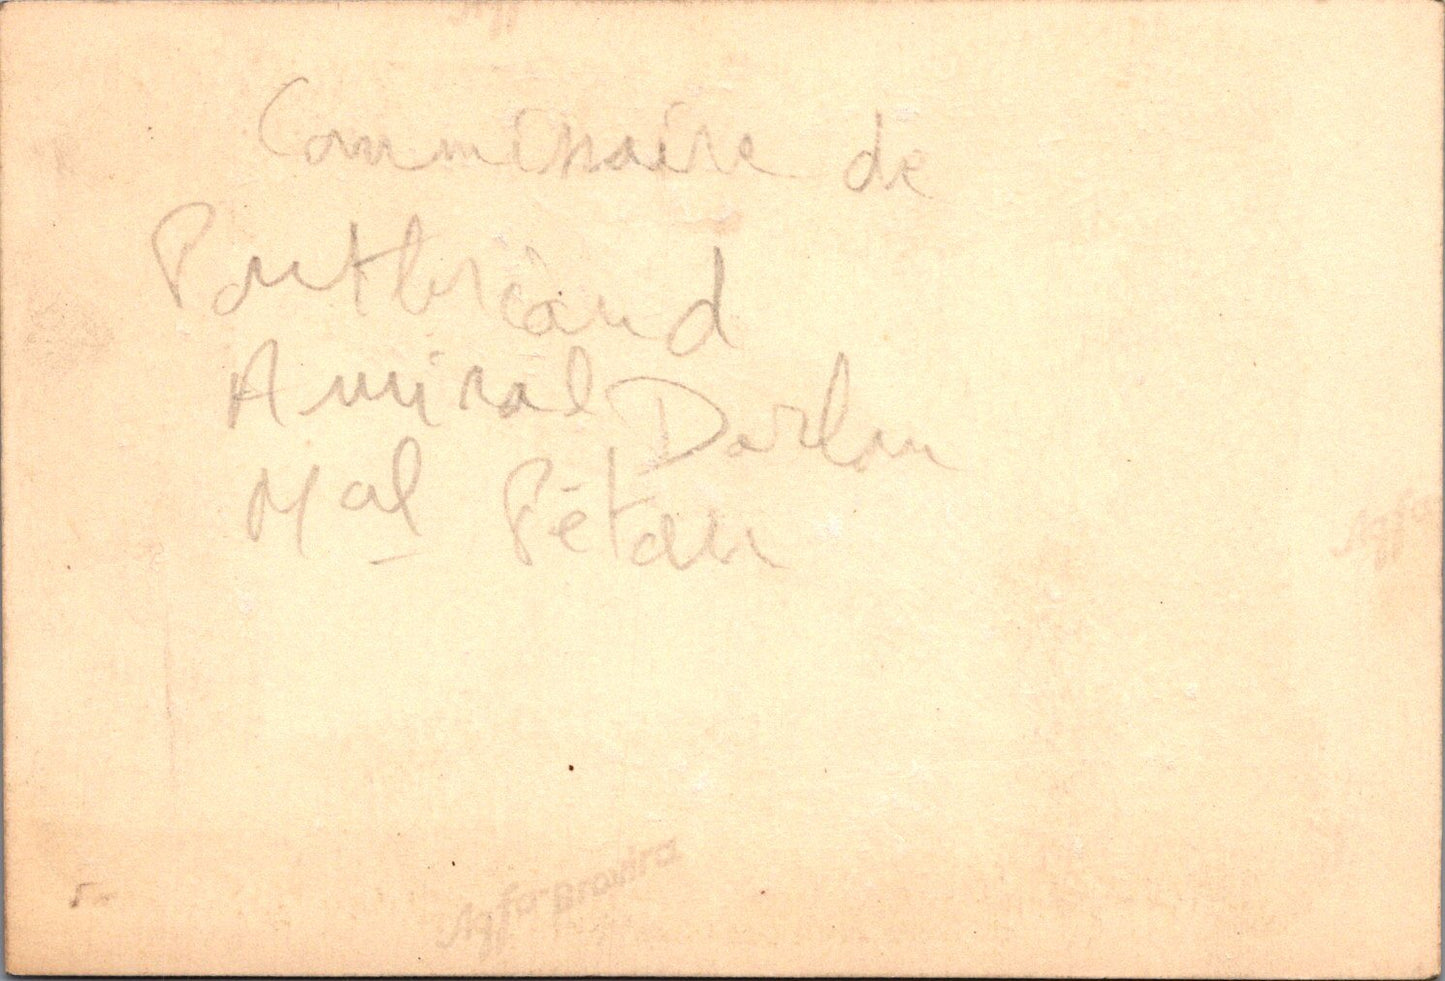 Commissaire de
Pontbriand
Amiral Darlan
Mal Pétain
5-
Agfa-Brovira
Agfa